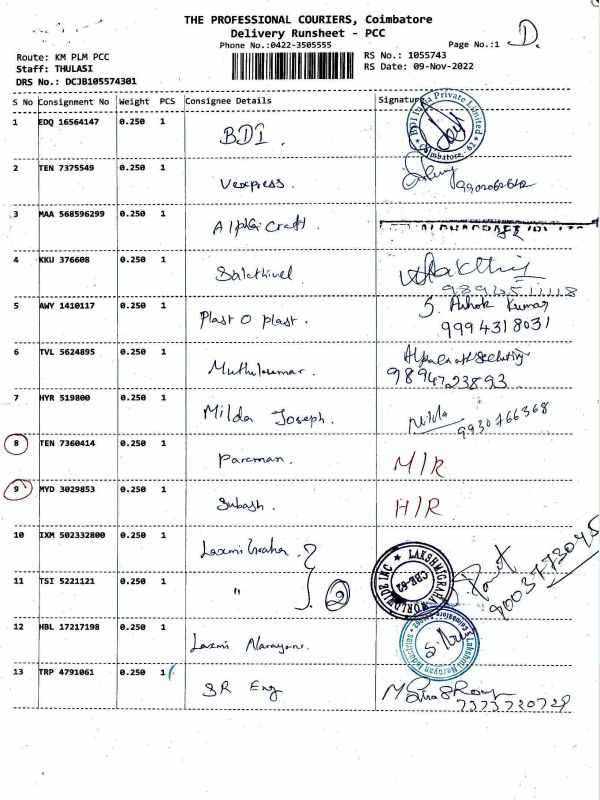 THE PROFESSIONAL COURIERS, Coimbatore
Delivery Runsheet - PCC
Phone No.:0422-3505555
Page No.:1 D.
Route: KM PLM PCC
Staff: THULASI
DRS No.: DCJB105574301
RS No.: 1055743
RS Date: 09-Nov-2022
S No Consignment No Weight PCS Consignee Details Signature
1 EDQ 16564147 0.250 1 BDI.
BDI India Private Limited
Coimbatore
2 TEN 7375549 0.250 1 Vexpress.
3 MAA 568596299 0.250 1 Alpha Craft.
4 KKU 376608 0.250 1 Salathivel
5 AWY 1410117 0.250 1 Plast O Plast. S. Ashok Kumar
9994318031
6 TVL 5624895 0.250 1 Muthukumar.
9894723893
7 HYR 519800 0.250 1 Milda Joseph. Milda
9930766368
8 TEN 7360414 0.250 1 Paraman. M/R
9 MYD 3029853 0.250 1 Subash. H/R
10 IXM 502332800 0.250 1 Laxmi Graha.
LAKSHMIGRAHA WORLDWIDE INC
CBE-62
9003773045
11 TSI 5221121 0.250 1 " 2
12 HBL 17217198 0.250 1 Laxmi Narayana.
13 TRP 4791061 0.250 1 SR Eng
7373720729